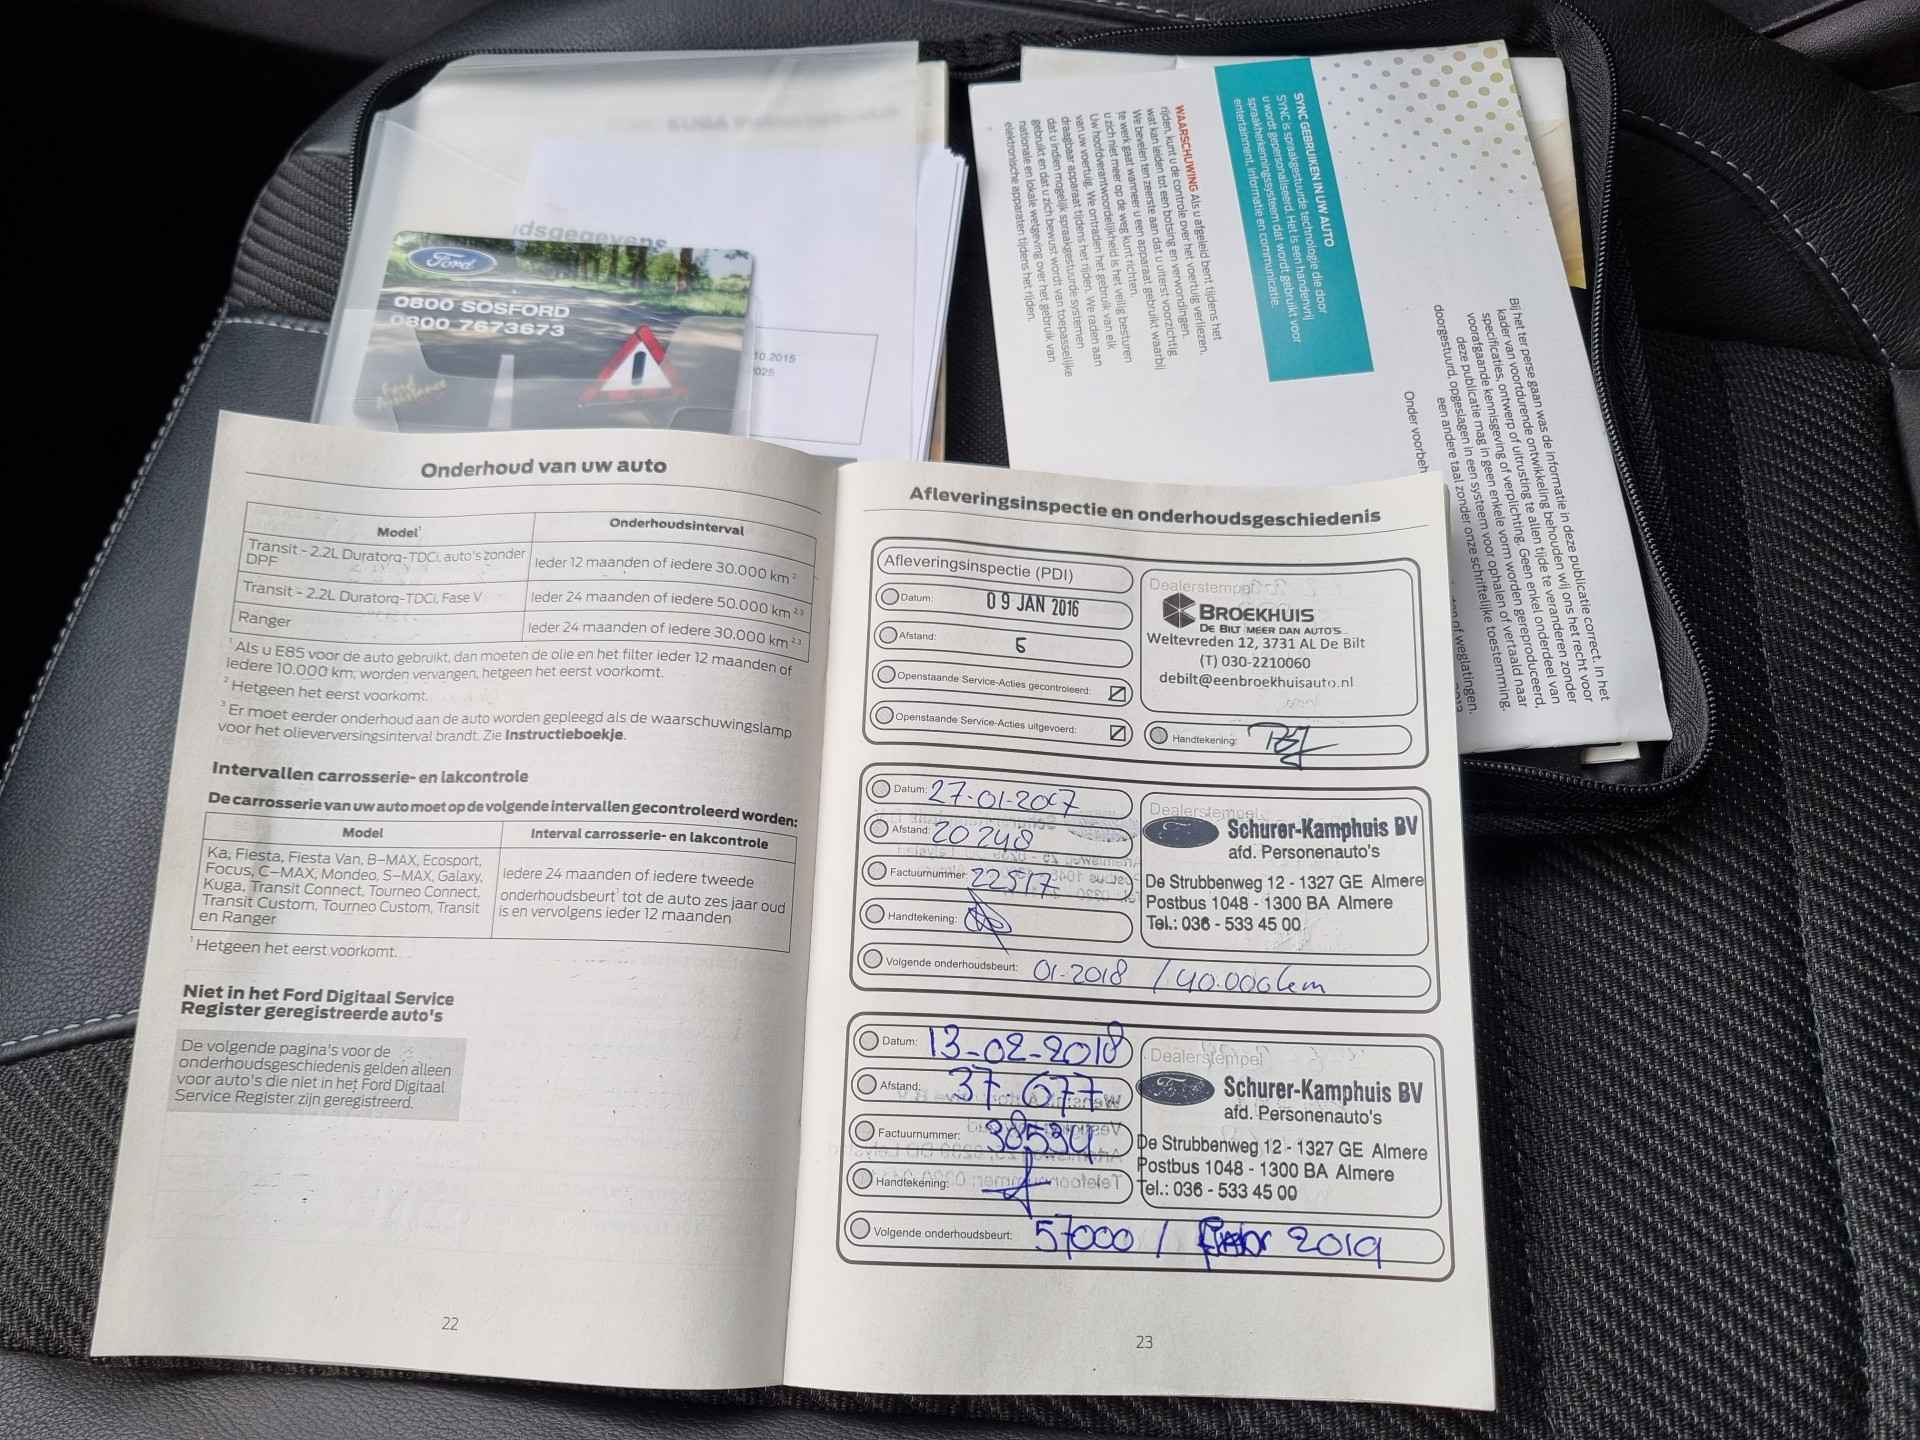 Ford
0800 SOSFORD
0800 7673673
Ford
Assistance
10.2015
2025
SYNC GEBRUIKEN IN UW AUTO
SYNC is spraakgestuurde technologie die door
u wordt gepersonaliseerd. Het is een handenvrij
spraakherkenningssysteem dat wordt gebruikt voor
entertainment, informatie en communicatie.
WAARSCHUWING Als u afgeleid bent tijdens het
rijden, kunt u de controle over het voertuig verliezen,
wat kan leiden tot een botsing en verwondingen.
We bevelen ten zeerste aan dat u uiterst voorzichtig
te werk gaat wanneer u een apparaat gebruikt waarbij
u zich niet meer op de weg kunt richten.
Uw hoofdverantwoordelijkheid is het veilig besturen
van uw voertuig. We ontraden het gebruik van elk
draagbaar apparaat tijdens het rijden. We raden aan
dat u indien mogelijk spraakgestuurde systemen
gebruikt en dat u zich bewust wordt van toepasselijke
nationale en lokale wetgeving over het gebruik van
elektronische apparaten tijdens het rijden.
Bij het ter perse gaan was de informatie in deze publicatie correct. In het
kader van voortdurende ontwikkeling behouden wij ons het recht voor
specificaties, ontwerp of uitrusting te allen tijde te veranderen zonder
voorafgaande kennisgeving of verplichting. Geen enkel onderdeel van
deze publicatie mag in geen enkele vorm worden gereproduceerd,
doorgestuurd, opgeslagen in een systeem voor ophalen of vertaald naar
een andere taal zonder onze schriftelijke toestemming.
Onder voorbeh
of weglatingen.
Onderhoud van uw auto
Model¹ Onderhoudsinterval
Transit - 2.2L Duratorq-TDCi, auto's zonder
DPF Ieder 12 maanden of iedere 30.000 km ²
Transit - 2.2L Duratorq-TDCi, Fase V Ieder 24 maanden of iedere 50.000 km ²·³
Ranger Ieder 24 maanden of iedere 30.000 km ²·³
¹ Als u E85 voor de auto gebruikt, dan moeten de olie en het filter ieder 12 maanden of
iedere 10.000 km, worden vervangen, hetgeen het eerst voorkomt.
² Hetgeen het eerst voorkomt.
³ Er moet eerder onderhoud aan de auto worden gepleegd als de waarschuwingslamp
voor het olieverversingsinterval brandt. Zie Instructieboekje.
Intervallen carrosserie- en lakcontrole
De carrosserie van uw auto moet op de volgende intervallen gecontroleerd worden:
Model Interval carrosserie- en lakcontrole
Ka, Fiesta, Fiesta Van, B–MAX, Ecosport,
Focus, C–MAX, Mondeo, S–MAX, Galaxy,
Kuga, Transit Connect, Tourneo Connect,
Transit Custom, Tourneo Custom, Transit
en Ranger
Iedere 24 maanden of iedere tweede
onderhoudsbeurt¹ tot de auto zes jaar oud
is en vervolgens ieder 12 maanden
¹ Hetgeen het eerst voorkomt.
Niet in het Ford Digitaal Service
Register geregistreerde auto's
De volgende pagina's voor de
onderhoudsgeschiedenis gelden alleen
voor auto's die niet in het Ford Digitaal
Service Register zijn geregistreerd.
22
Afleveringsinspectie en onderhoudsgeschiedenis
Afleveringsinspectie (PDI)
Datum: 09 JAN 2016
Afstand: 6
Openstaande Service-Acties gecontroleerd:
Openstaande Service-Acties uitgevoerd:
Dealerstempel
BROEKHUIS
DE BILT MEER DAN AUTO'S
Weltevreden 12, 3731 AL De Bilt
(T) 030-2210060
debilt@eenbroekhuisauto.nl
Handtekening:
Datum: 27-01-2007
Afstand: 20248
Factuurnummer: 22517
Handtekening:
Volgende onderhoudsbeurt: 01-2018 / 40.000km
Dealerstempel
Schurer-Kamphuis BV
afd. Personenauto's
De Strubbenweg 12 - 1327 GE Almere
Postbus 1048 - 1300 BA Almere
Tel.: 036 - 533 45 00
Datum: 13-02-2018
Afstand: 37.677
Factuurnummer: 38534
Handtekening:
Volgende onderhoudsbeurt: 57000 / 2019
Dealerstempel
Schurer-Kamphuis BV
afd. Personenauto's
De Strubbenweg 12 - 1327 GE Almere
Postbus 1048 - 1300 BA Almere
Tel.: 036 - 533 45 00
23